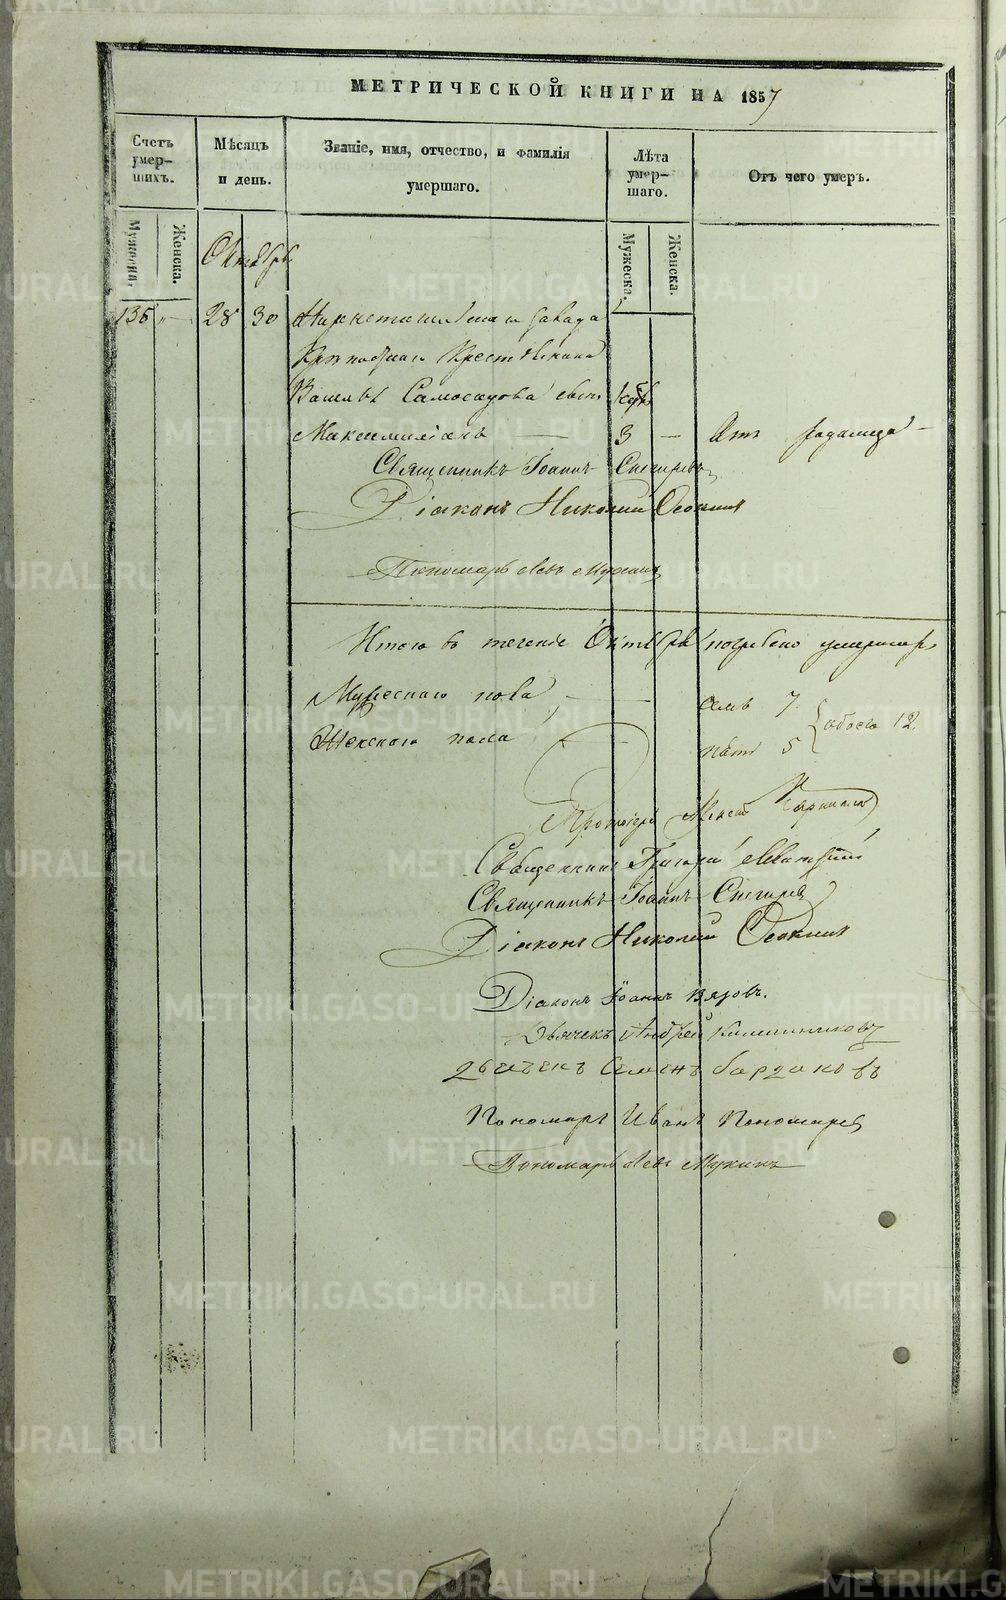 МЕТРИЧЕСКОЙ КНИГИ НА 1857
Счетъ умер-шихъ.
Мѣсяцъ и день.
Званіе, имя, отчество, и фамилія умершаго.
Лѣта умер-шаго.
Отъ чего умеръ.
Мужеска.
Женска.
Октябрь
Мужеска.
Женска.
136 " 28 30
завода
Крестьянина
Самосадова сынъ
Максимиліанъ — 3 — Отъ родимца
Священникъ Іоаннъ Снегиревъ
Діаконъ Николай Осокинъ
Пономарь Левъ Мухинъ
Итого въ теченіе Октября погребено умершихъ
Мужескаго пола — семь 7
Женскаго пола — пять 5 обоего 12.
Протоіерей
Священникъ Григорій
Священникъ Іоаннъ Снегиревъ
Діаконъ Николай Осокинъ
Діаконъ Іоаннъ Вязовъ.
Дьячекъ Андрей
Дьячекъ Семенъ Бардаковъ
Пономарь Иванъ Пономаревъ
Пономарь Левъ Мухинъ
METRIKI.GASO-URAL.RU